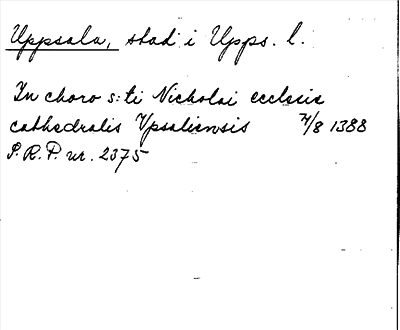 Uppsala, stad i Upps. l.
In choro s:ti Nicholai ecclesie
cathedralis Ypsaliensis 7/8 1388
S.R.P. nr. 2375